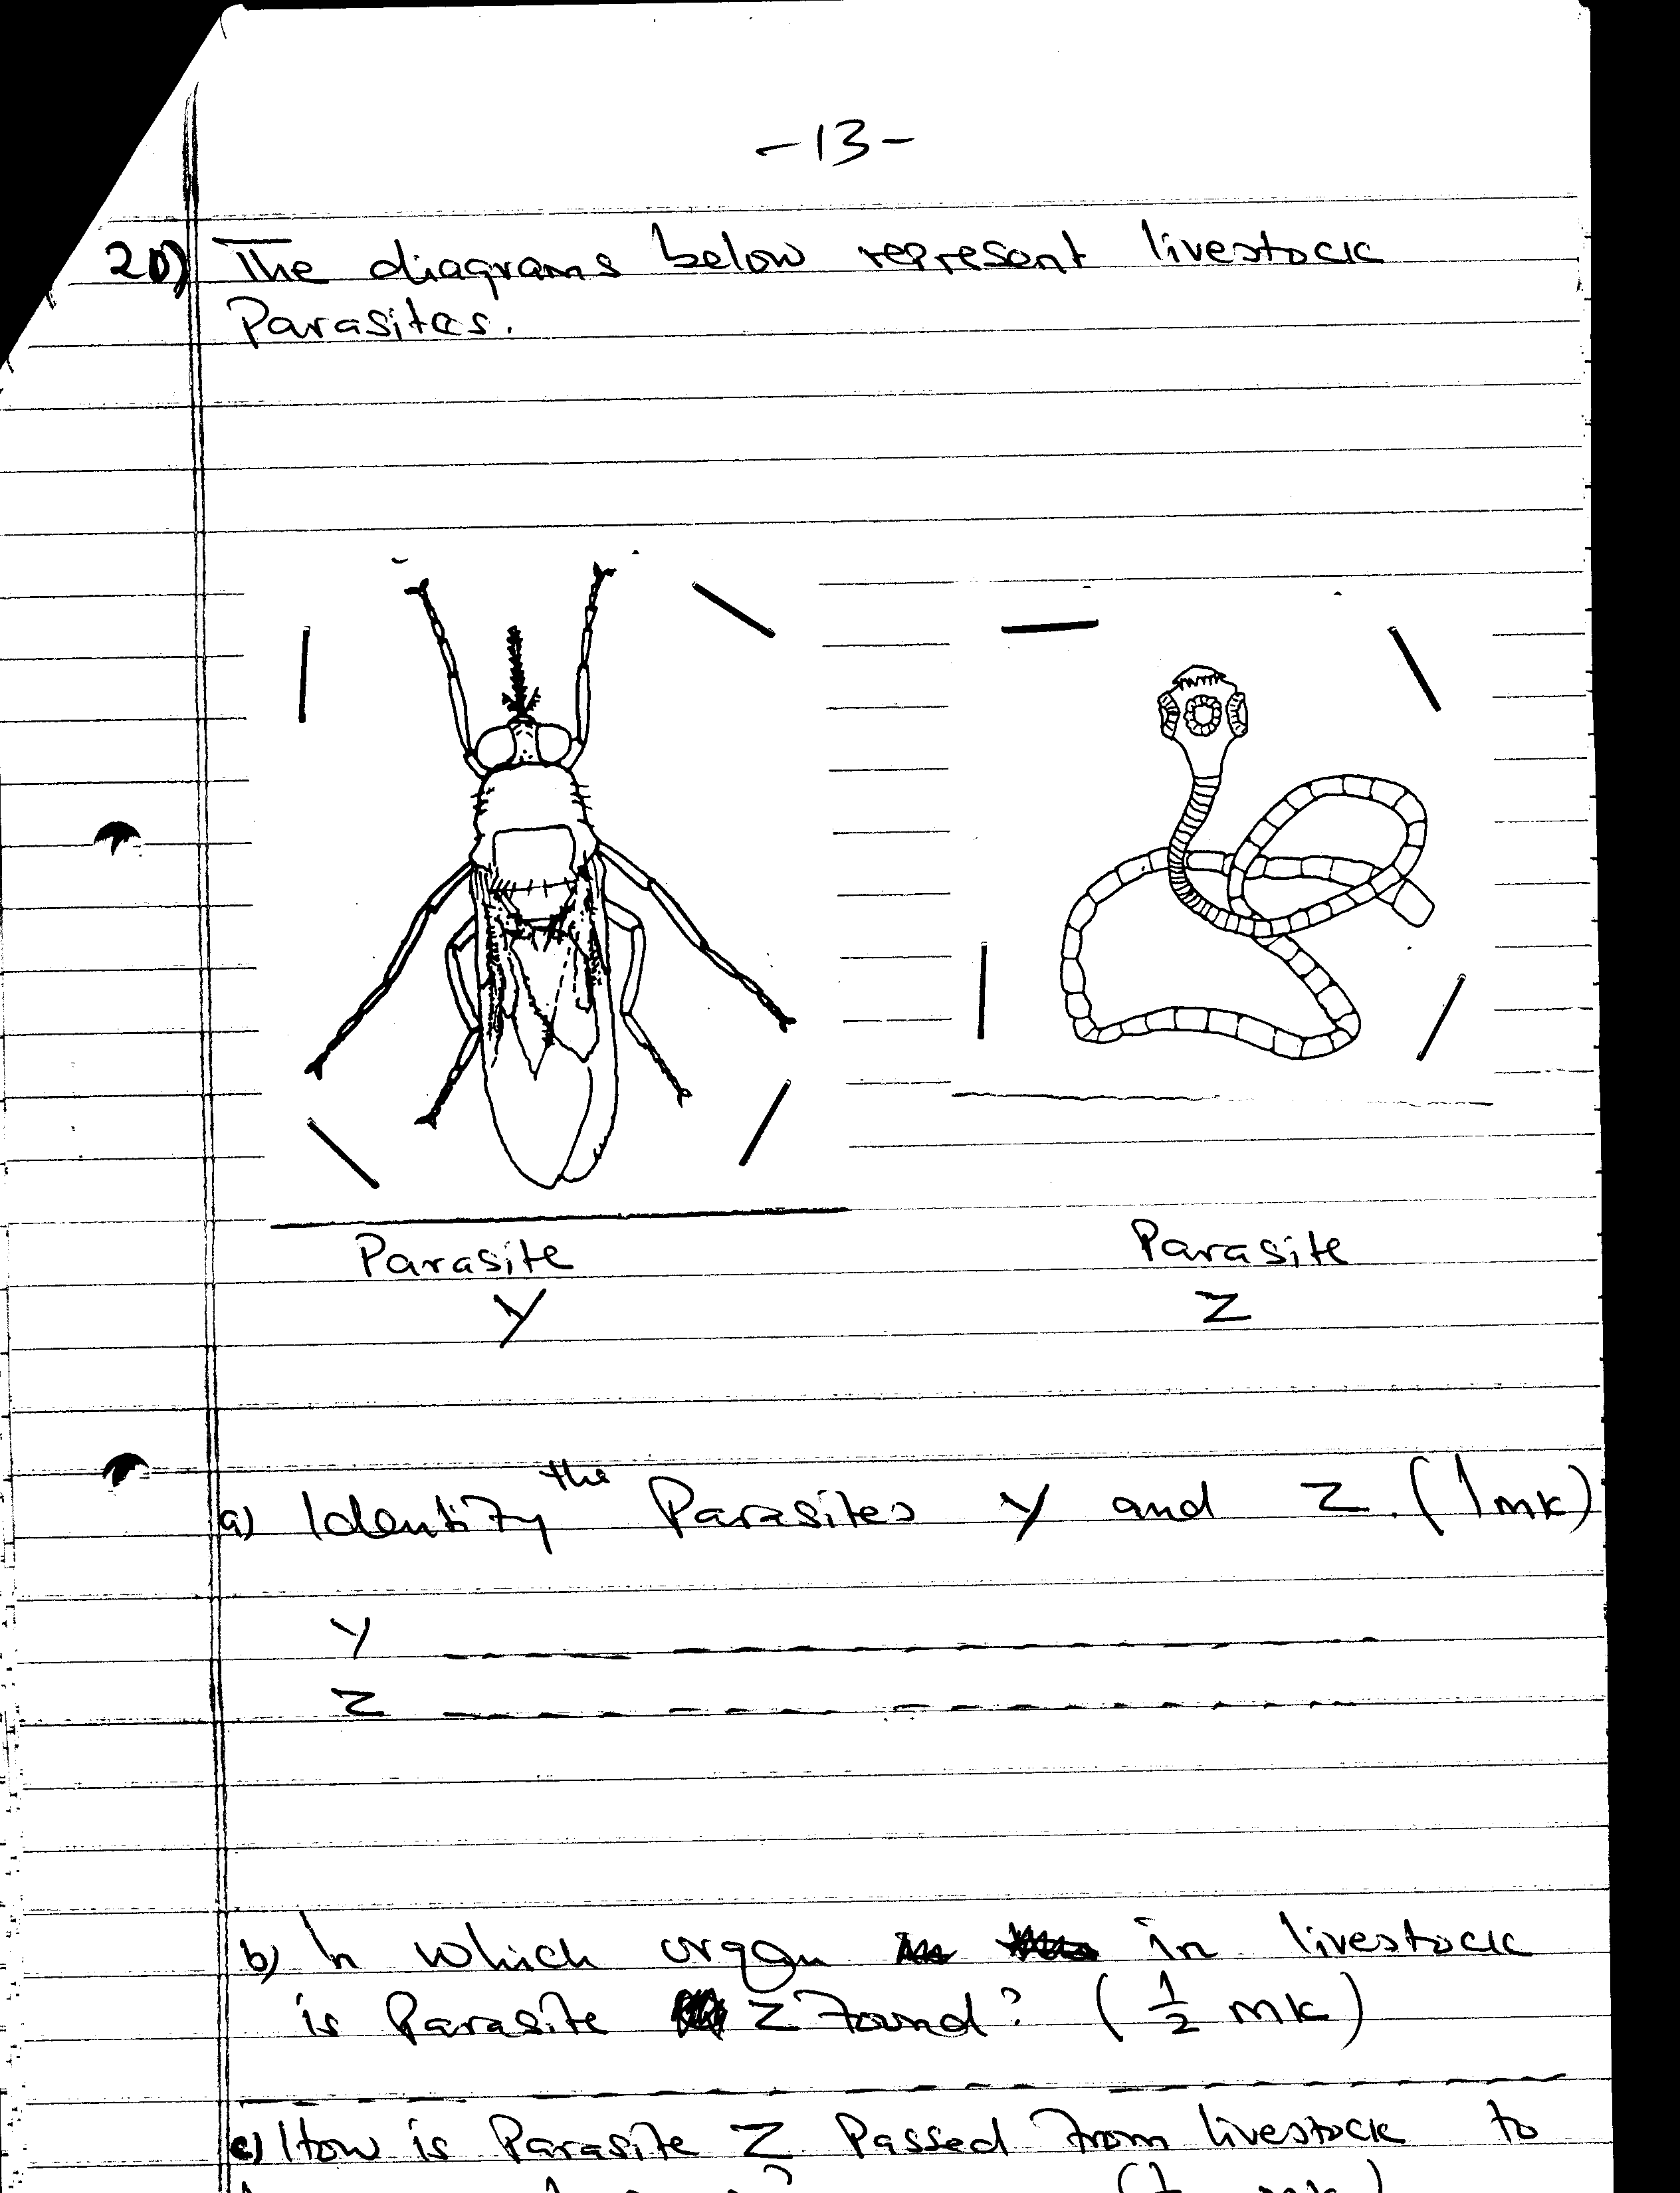 -13-
20) The diagrams below represent livestock
Parasites.
Parasite
Y
Parasite
Z
a) Identify the Parasites Y and Z. (1mk)
Y
Z
b) In which organ in livestock
is Parasite Z found? (1/2 mk)
c) How is Parasite Z Passed from livestock to